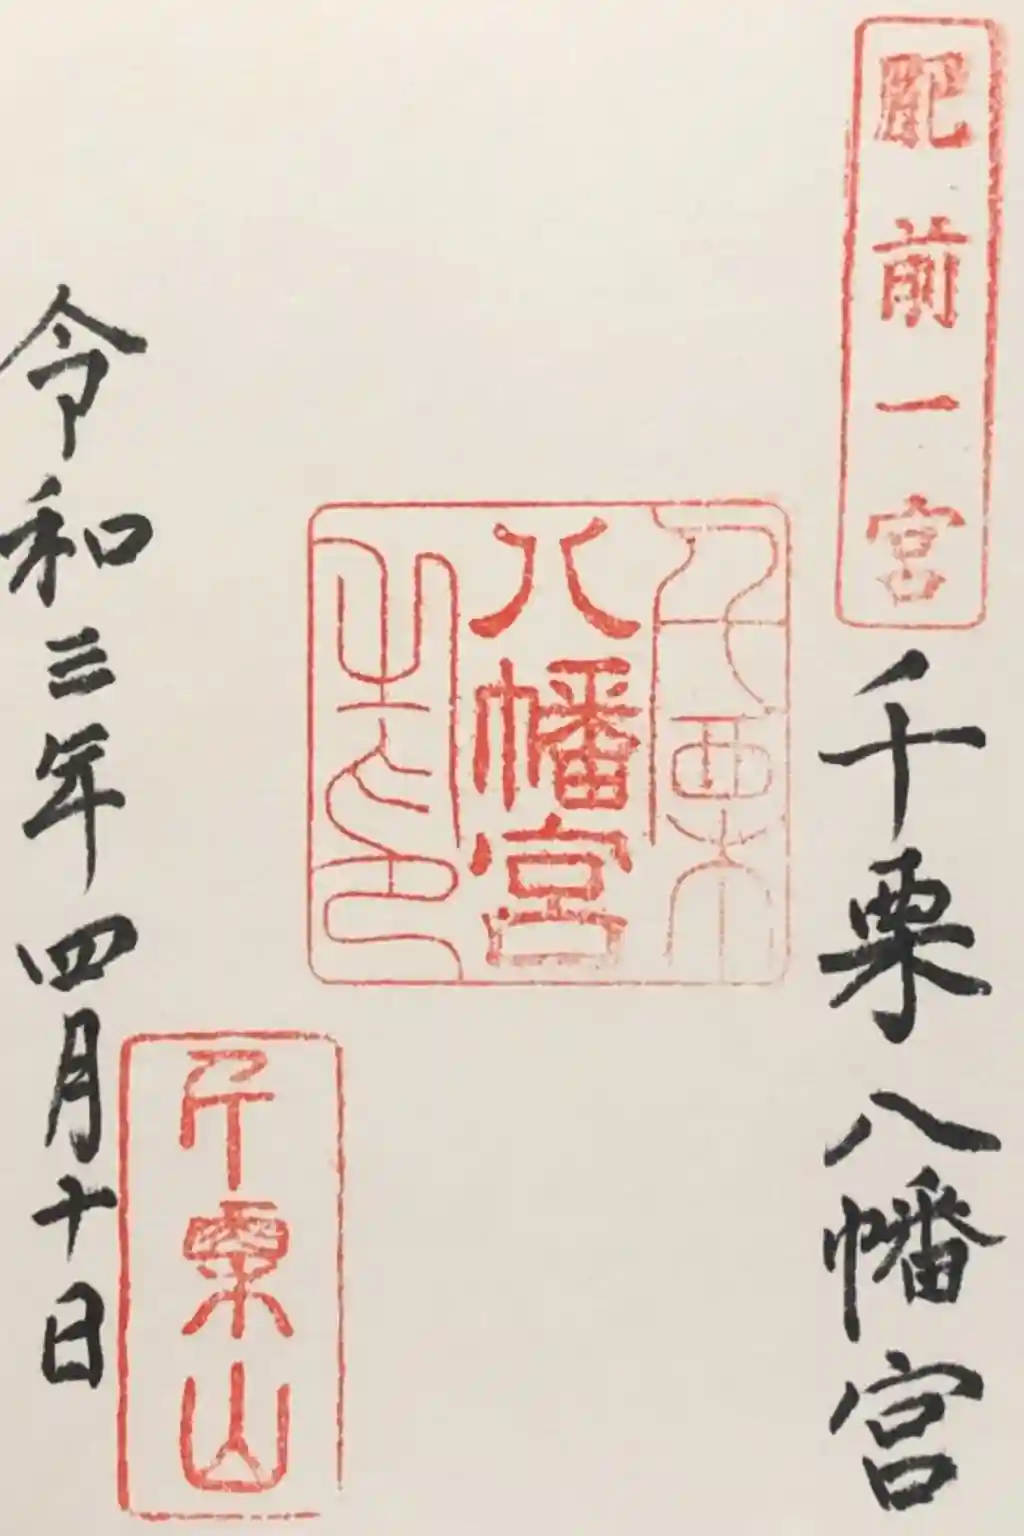 肥前一宮
千栗八幡宮
千栗
八幡宮
之印
千栗山
令和三年四月十日